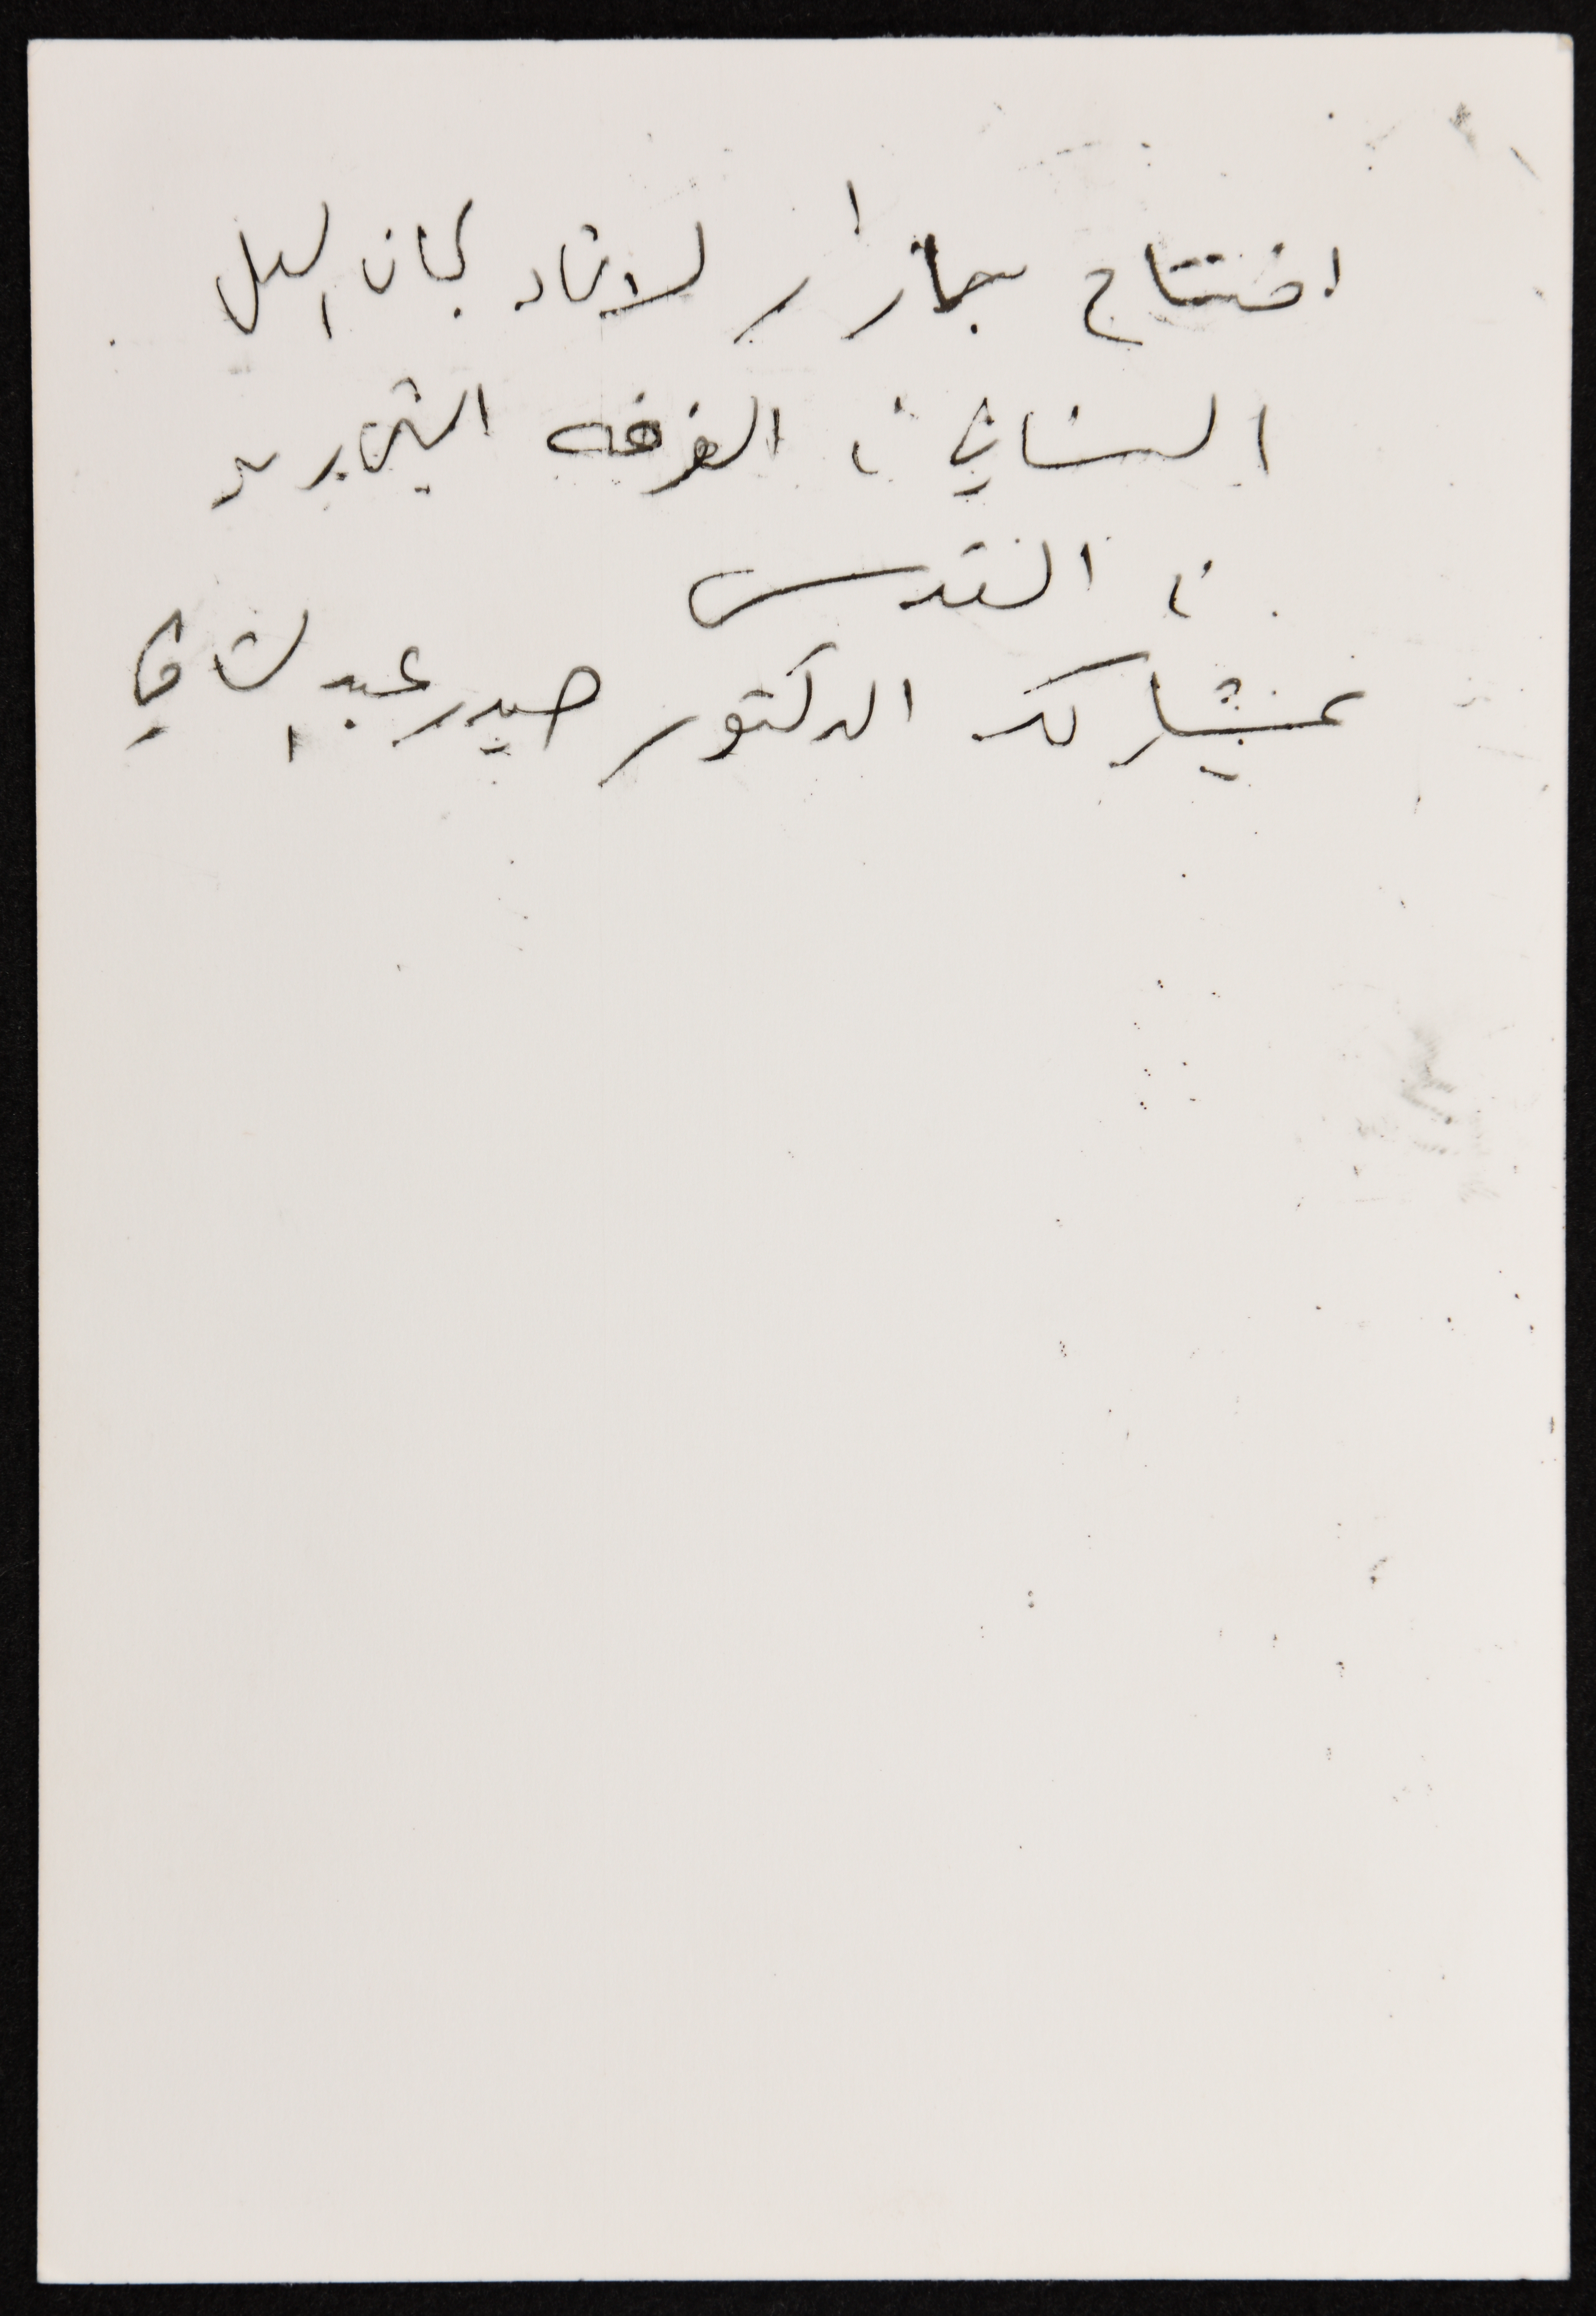 افتتاح بازار لاتحاد لجان العمل
النسائي في الغرفه التجاريه
في القدس
بمشاركه الدكتور حيدر عبد الشافي